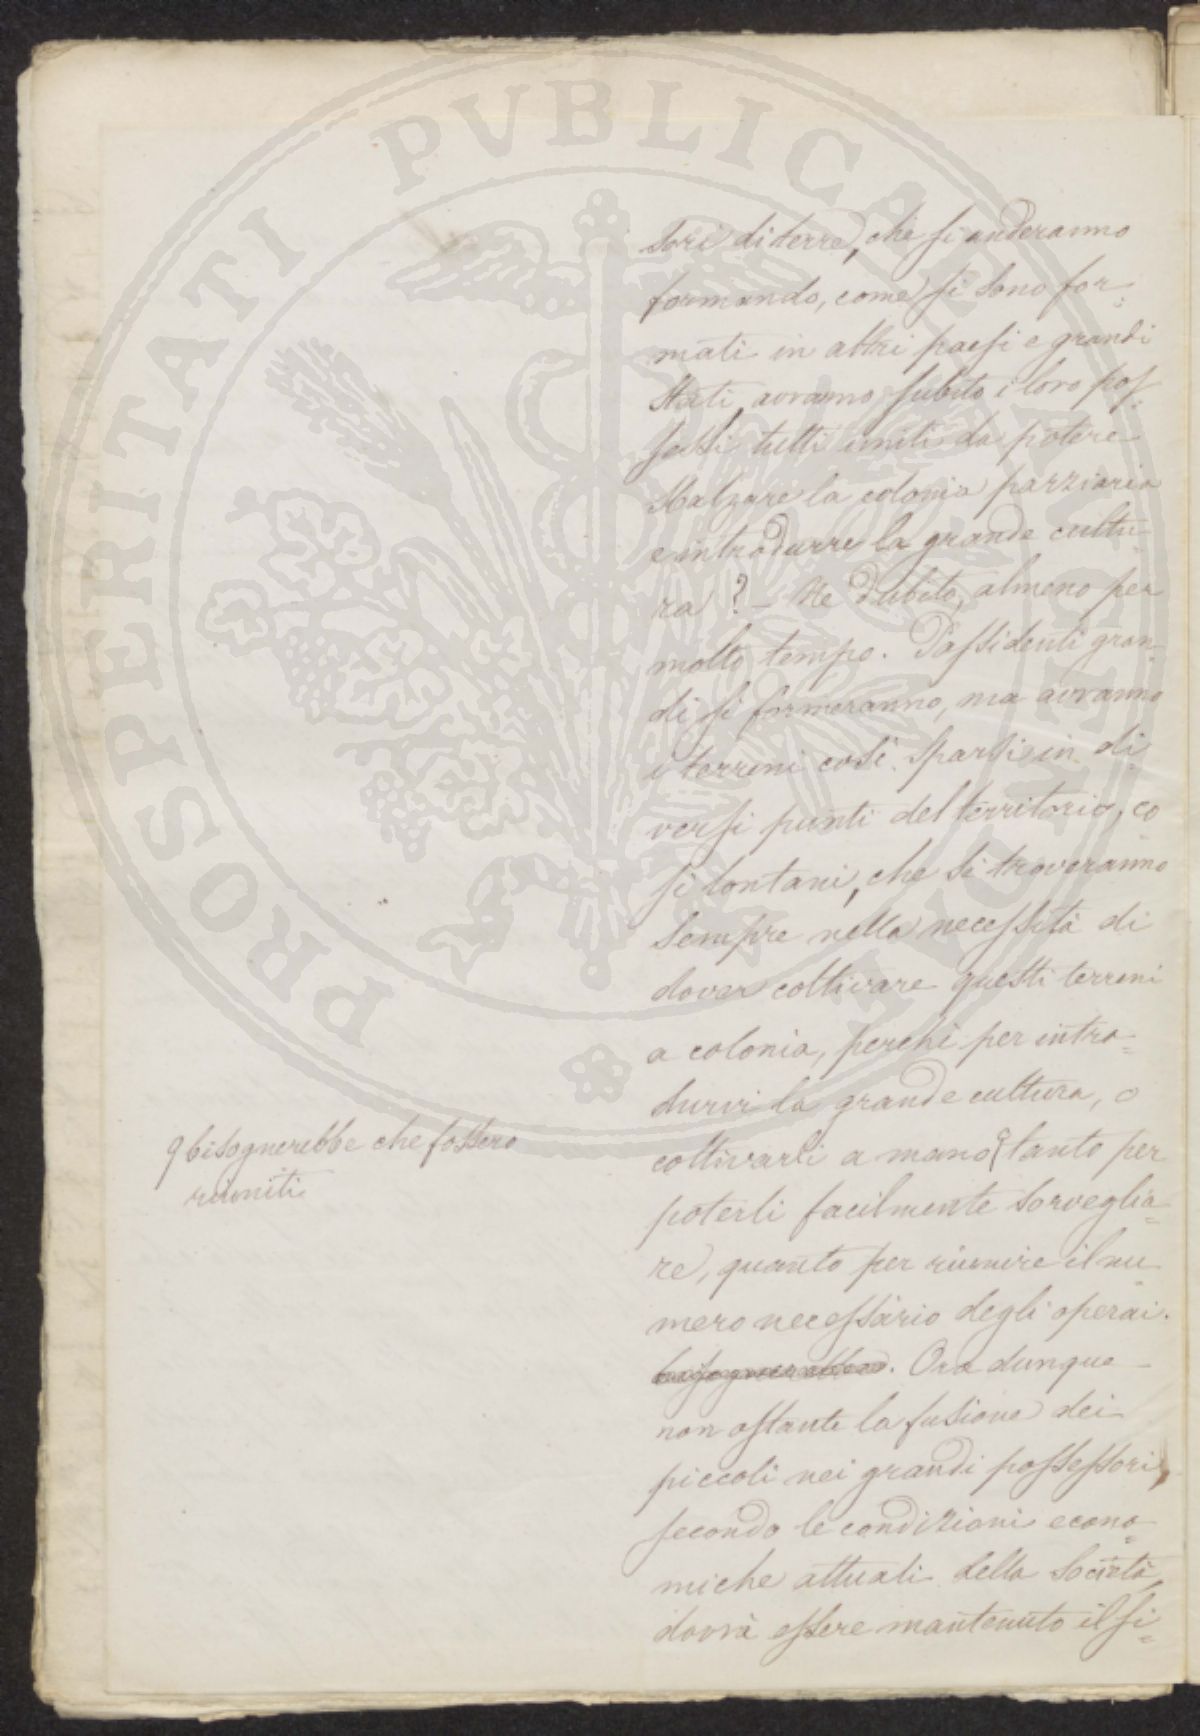 PROSPERITATI PVBLICAE AVGENDAE
sori di terre, che si anderanno
formando, come si sono for=
mati in altri paesi e grandi
Stati, avranno subito i loro pos=
sessi tutti uniti da potere
sbalzare la colonia parziaria
e introdurre la grande cultu=
ra? - Ne dubito, almeno per
molto tempo. Possidenti gran=
di si formeranno, ma avranno
i terreni così sparsi in di=
versi punti del territorio, co
sì lontani, che si troveranno
sempre nella necessità di
dover coltivare questi terreni
a colonia, perchè per intro=
durvi la grande cultura, o
coltivarli a mano tanto per
bisognerebbe che fossero
riuniti
poterli facilmente sorveglia=
re, quanto per riunire il nu=
mero necessario degli operai.
bisognerebbe. Ora dunque
non ostante la fusione dei
piccoli nei grandi possessori,
secondo le condizioni econo=
miche attuali della Società,
dovrà essere mantenuto il si=